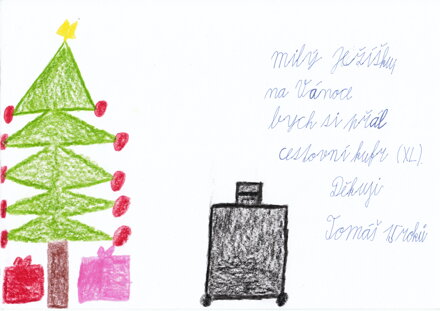 milý Ježíšku,
na Vánoce
bych si přál
cestovní kufr (XL).
Děkuji
Tomáš 15 roků